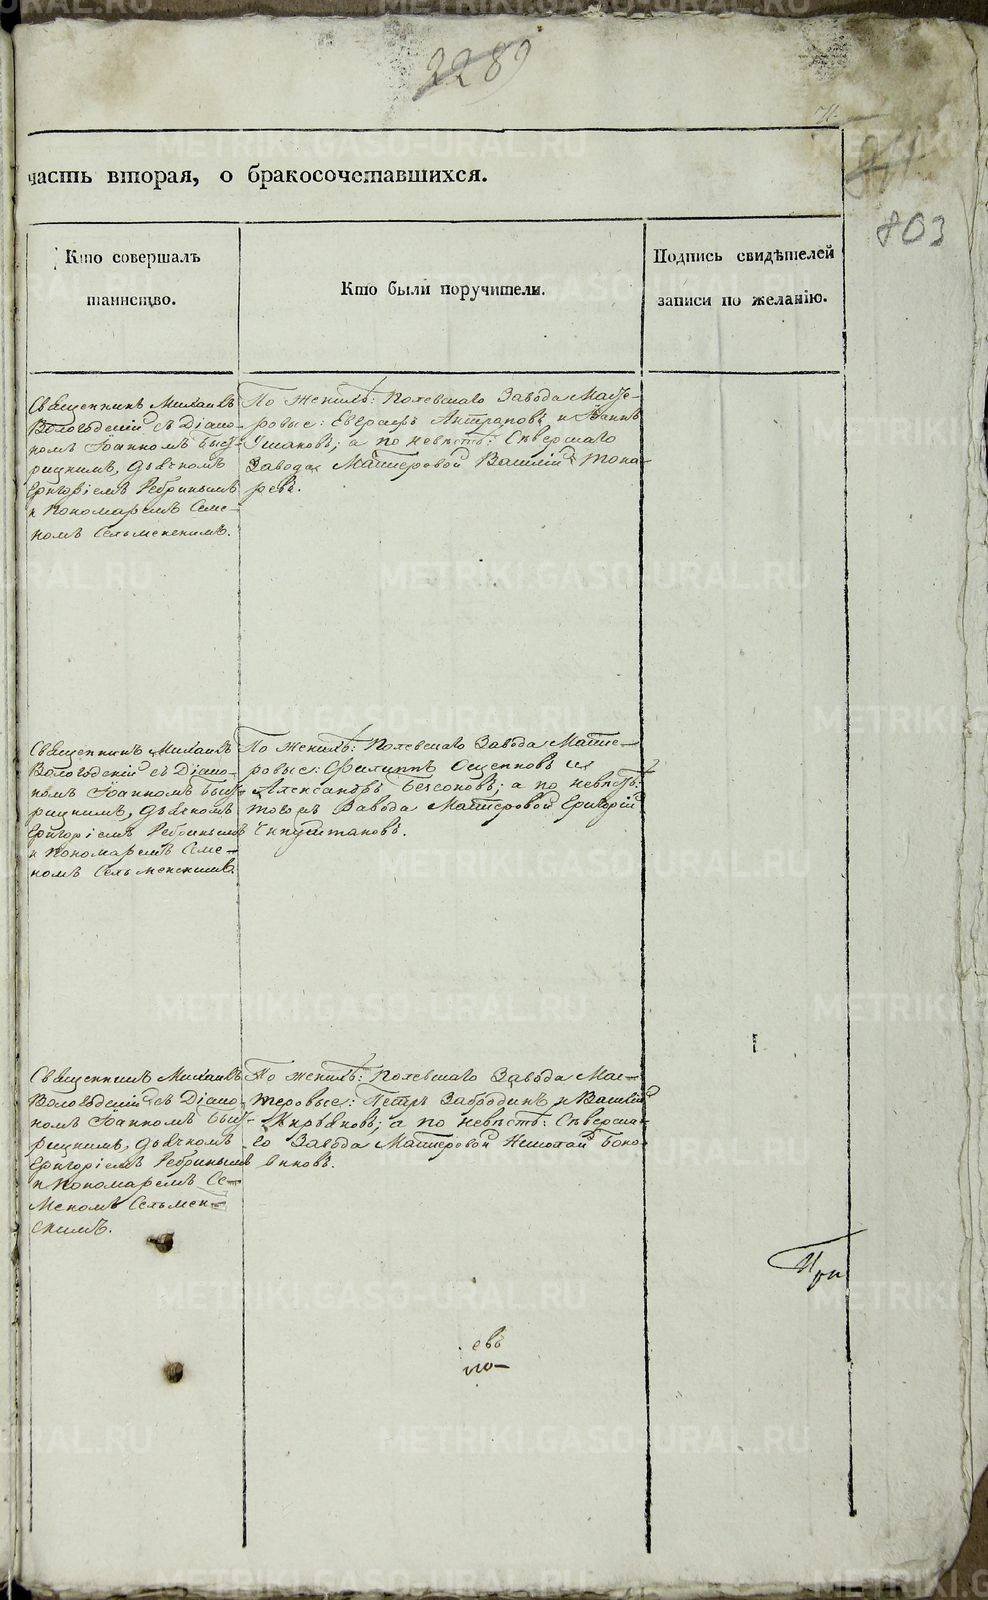 2289
часть вторая, о бракосочетавшихся.
803
Кто совершалъ
таинство.
Кто были поручители.
Подпись свидѣтелей
записи по желанію.
Священникъ Михаилъ
Вологодскій съ Діако-
номъ Іоанномъ Быст-
рицкимъ, Дьячкомъ
Григоріемъ Ребринымъ
и Пономаремъ Семе-
номъ Сельменскимъ.
По женихѣ: Полевскаго Завода Масте-
ровые: Евграфъ Антраповъ и Іоаннъ
Ушаковъ; а по невѣстѣ: Сѣверскаго
Завода Мастеровой Василій Тока-
ревъ.
Священникъ Михаилъ
Вологодскій съ Діако-
номъ Іоанномъ Быст-
рицкимъ, Дьячкомъ
Григоріемъ Ребринымъ
и Пономаремъ Семе-
номъ Сельменскимъ.
По женихѣ: Полевскаго Завода Масте-
ровые: Филиппъ Ощепковъ и
Александръ Безсоновъ; а по невѣстѣ:
тогожъ Завода Мастеровой Григорій
Чипуштановъ.
Священникъ Михаилъ
Вологодскій съ Діако-
номъ Іоанномъ Быст-
рицкимъ, Дьячкомъ
Григоріемъ Ребринымъ
и Пономаремъ Се-
меномъ Сельмен-
скимъ.
По женихѣ: Полевскаго Завода Мас-
теровые: Петръ Забродинъ и Василій
Кирьяковъ; а по невѣстѣ: Сѣверска-
го Завода Мастеровой Николай Боко-
виковъ.
При
евъ
METRIKI.GASO-URAL.RU